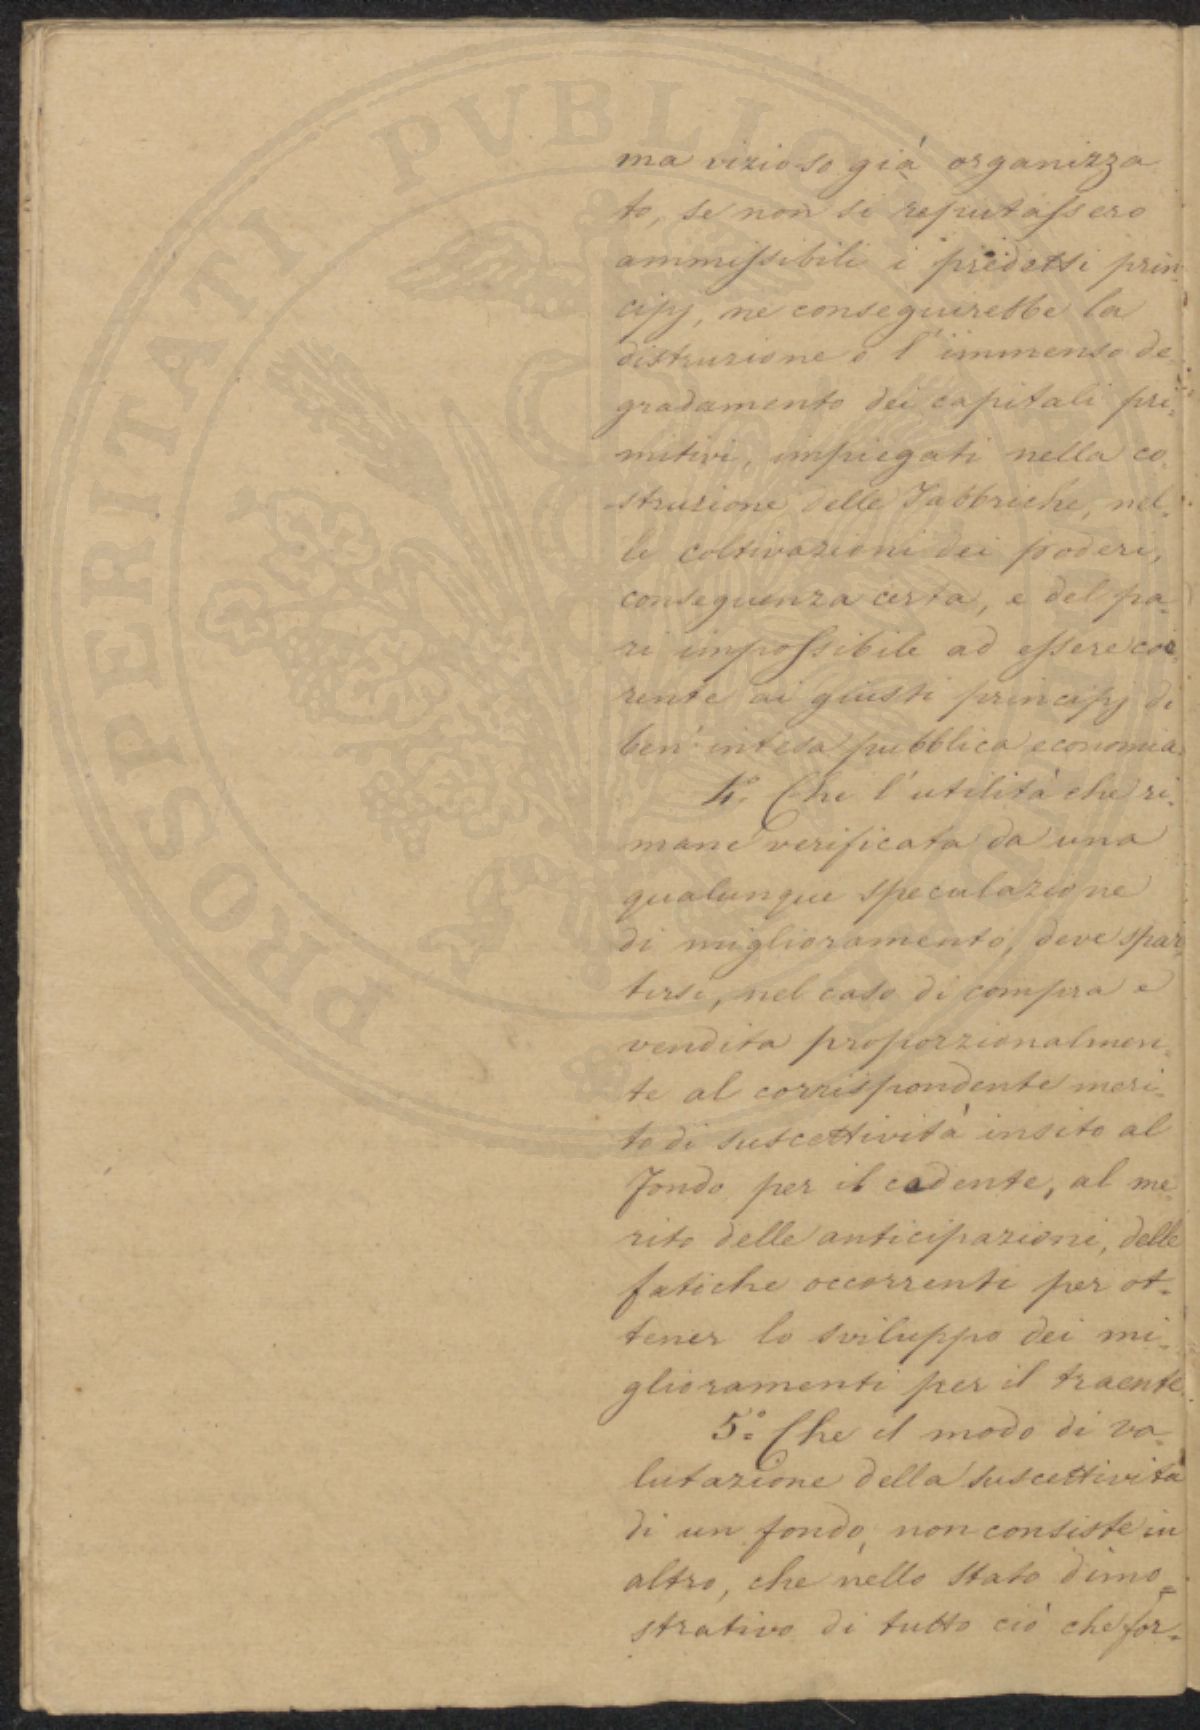 PROSPERITATI PVBLICAE
ma vizioso già organizza
to, se non si reputassero
ammissibili i predetti prin
cipj, ne conseguirebbe la
distruzione o l'immenso de
gradamento dei capitali pri=
mitivi, impiegati nella co=
struzione delle Fabbriche, nel=
le coltivazioni dei poderi,
conseguenza certa, e del pa=
ri impossibile ad essere coe
rente ai giusti principj di
ben' intesa pubblica economia.
4.° Che l'utilità che ri=
mane verificata da una
qualunque speculazione
di miglioramento, deve spar
tirsi, nel caso di compra e
vendita proporzionalmen=
te al corrispondente meri=
to di suscettività insito al
Fondo per il cedente, al me
rito delle anticipazioni, delle
fatiche occorrenti per ot=
tener lo sviluppo dei mi=
glioramenti per il traente.
5.° Che il modo di va=
lutazione della suscettività
di un fondo, non consiste in
altro, che nello stato dimo=
strativo di tutto ciò che for=